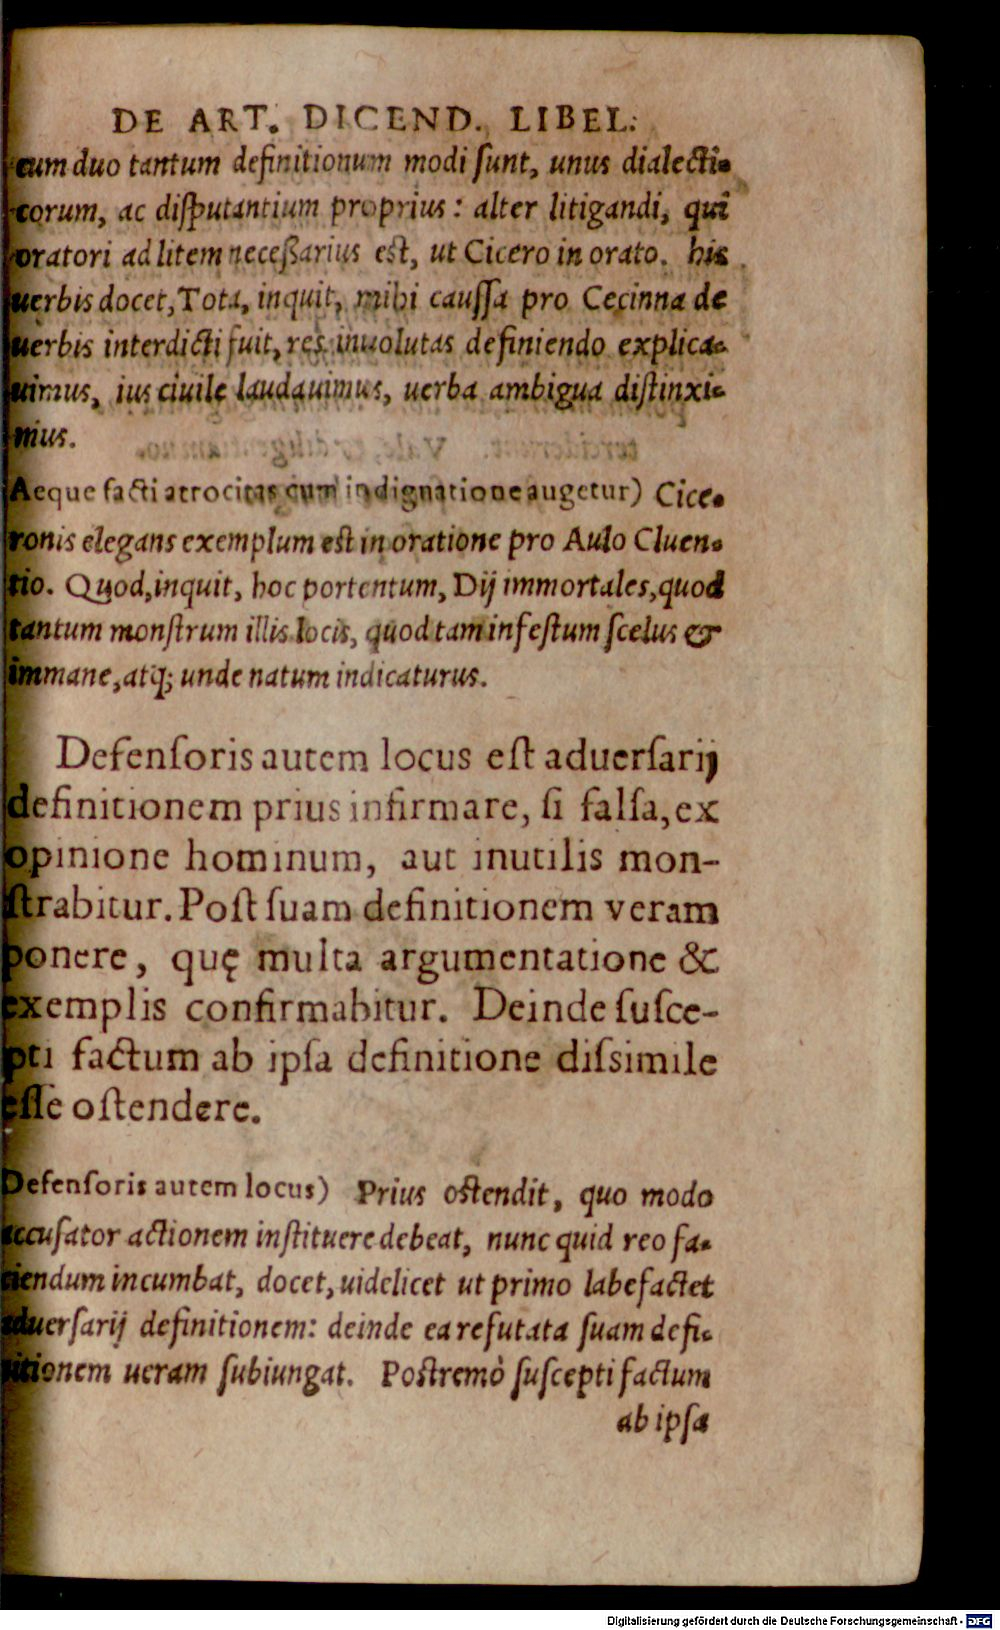 DE ART. DICEND. LIBEL.
cum duo tantum definitionum modi ſunt, unus dialecti-
corum, ac diſputantium proprius: alter litigandi, qui
oratori ad litem neceßarius est, ut Cicero in orato. his
uerbis docet, Tota, inquit, mihi cauſſa pro Cecinna de
uerbis interdicti fuit, res inuolutas definiendo explica-
uimus, ius ciuile laudauimus, uerba ambigua diſtinxi-
mus.
Aeque facti atrocitas cum indignatione augetur) Cice-
ronis elegans exemplum est in oratione pro Aulo Cluen-
tio. Quod, inquit, hoc portentum, Dij immortales, quod
tantum monſtrum illis locis, quod tam infeſtum ſcelus &
immane, atq; unde natum indicaturus.
Defenſoris autem locus eſt aduerſarij
definitionem prius infirmare, ſi falſa, ex
opinione hominum, aut inutilis mon-
ſtrabitur. Poſt ſuam definitionem veram
ponere, quę multa argumentatione &
exemplis confirmabitur. Deinde ſuſce-
pti factum ab ipſa definitione diſsimile
eſſe oſtendere.
Defenſoris autem locus) Prius oſtendit, quo modo
accuſator actionem inſtituere debeat, nunc quid reo fa-
ciendum incumbat, docet, uidelicet ut primo labefactet
aduerſarij definitionem: deinde ea refutata ſuam defi-
nitionem ueram ſubiungat. Poſtremò ſuſcepti factum
ab ipſa
Digitalisierung gefördert durch die Deutsche Forschungsgemeinschaft - DFG